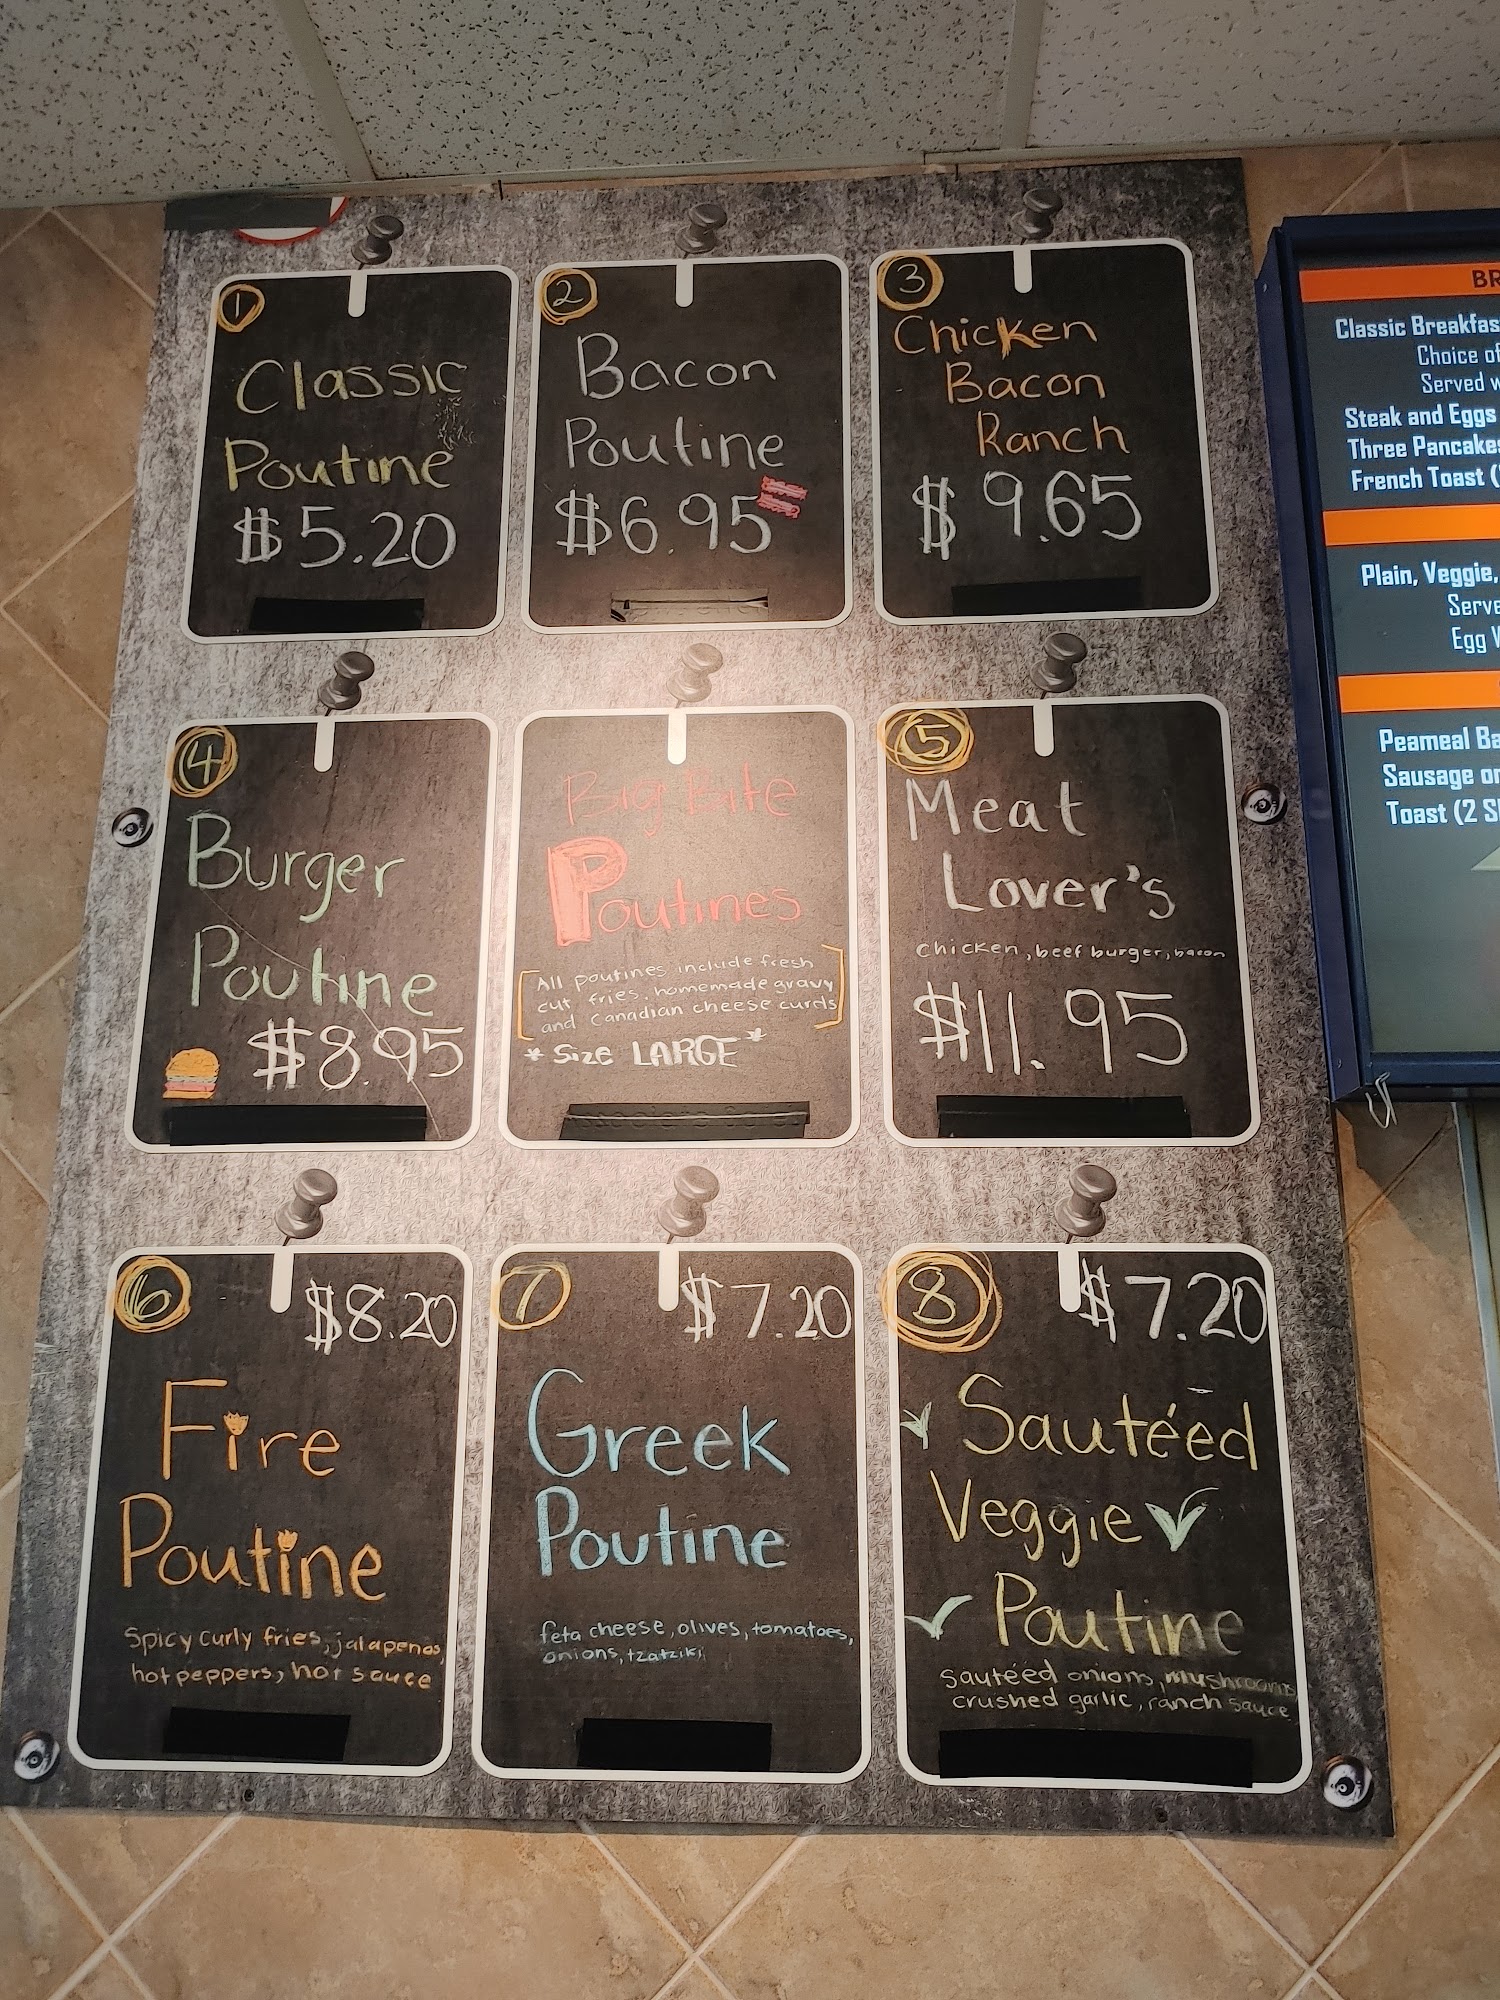 1
Classic
Poutine
$5.20
2
Bacon
Poutine
$6.95
3
Chicken
Bacon
Ranch
$9.65
4
Burger
Poutine
$8.95
Big Bite
Poutines
All poutines include fresh
cut fries, homemade gravy
and Canadian cheese curds
* Size LARGE *
5
Meat
Lover's
chicken, beef burger, bacon
$11.95
6
$8.20
Fire
Poutine
Spicy curly fries, jalapenos,
hot peppers, hot sauce
7
$7.20
Greek
Poutine
feta cheese, olives, tomatoes,
onions, tzatziki
8
$7.20
Sautéed
Veggie
Poutine
sautéed onions, mushrooms,
crushed garlic, ranch sauce
BR
Classic Breakfas
Choice of
Served w
Steak and Eggs
Three Pancakes
French Toast (
Plain, Veggie,
Serve
Egg W
Peameal Ba
Sausage or
Toast (2 Sl